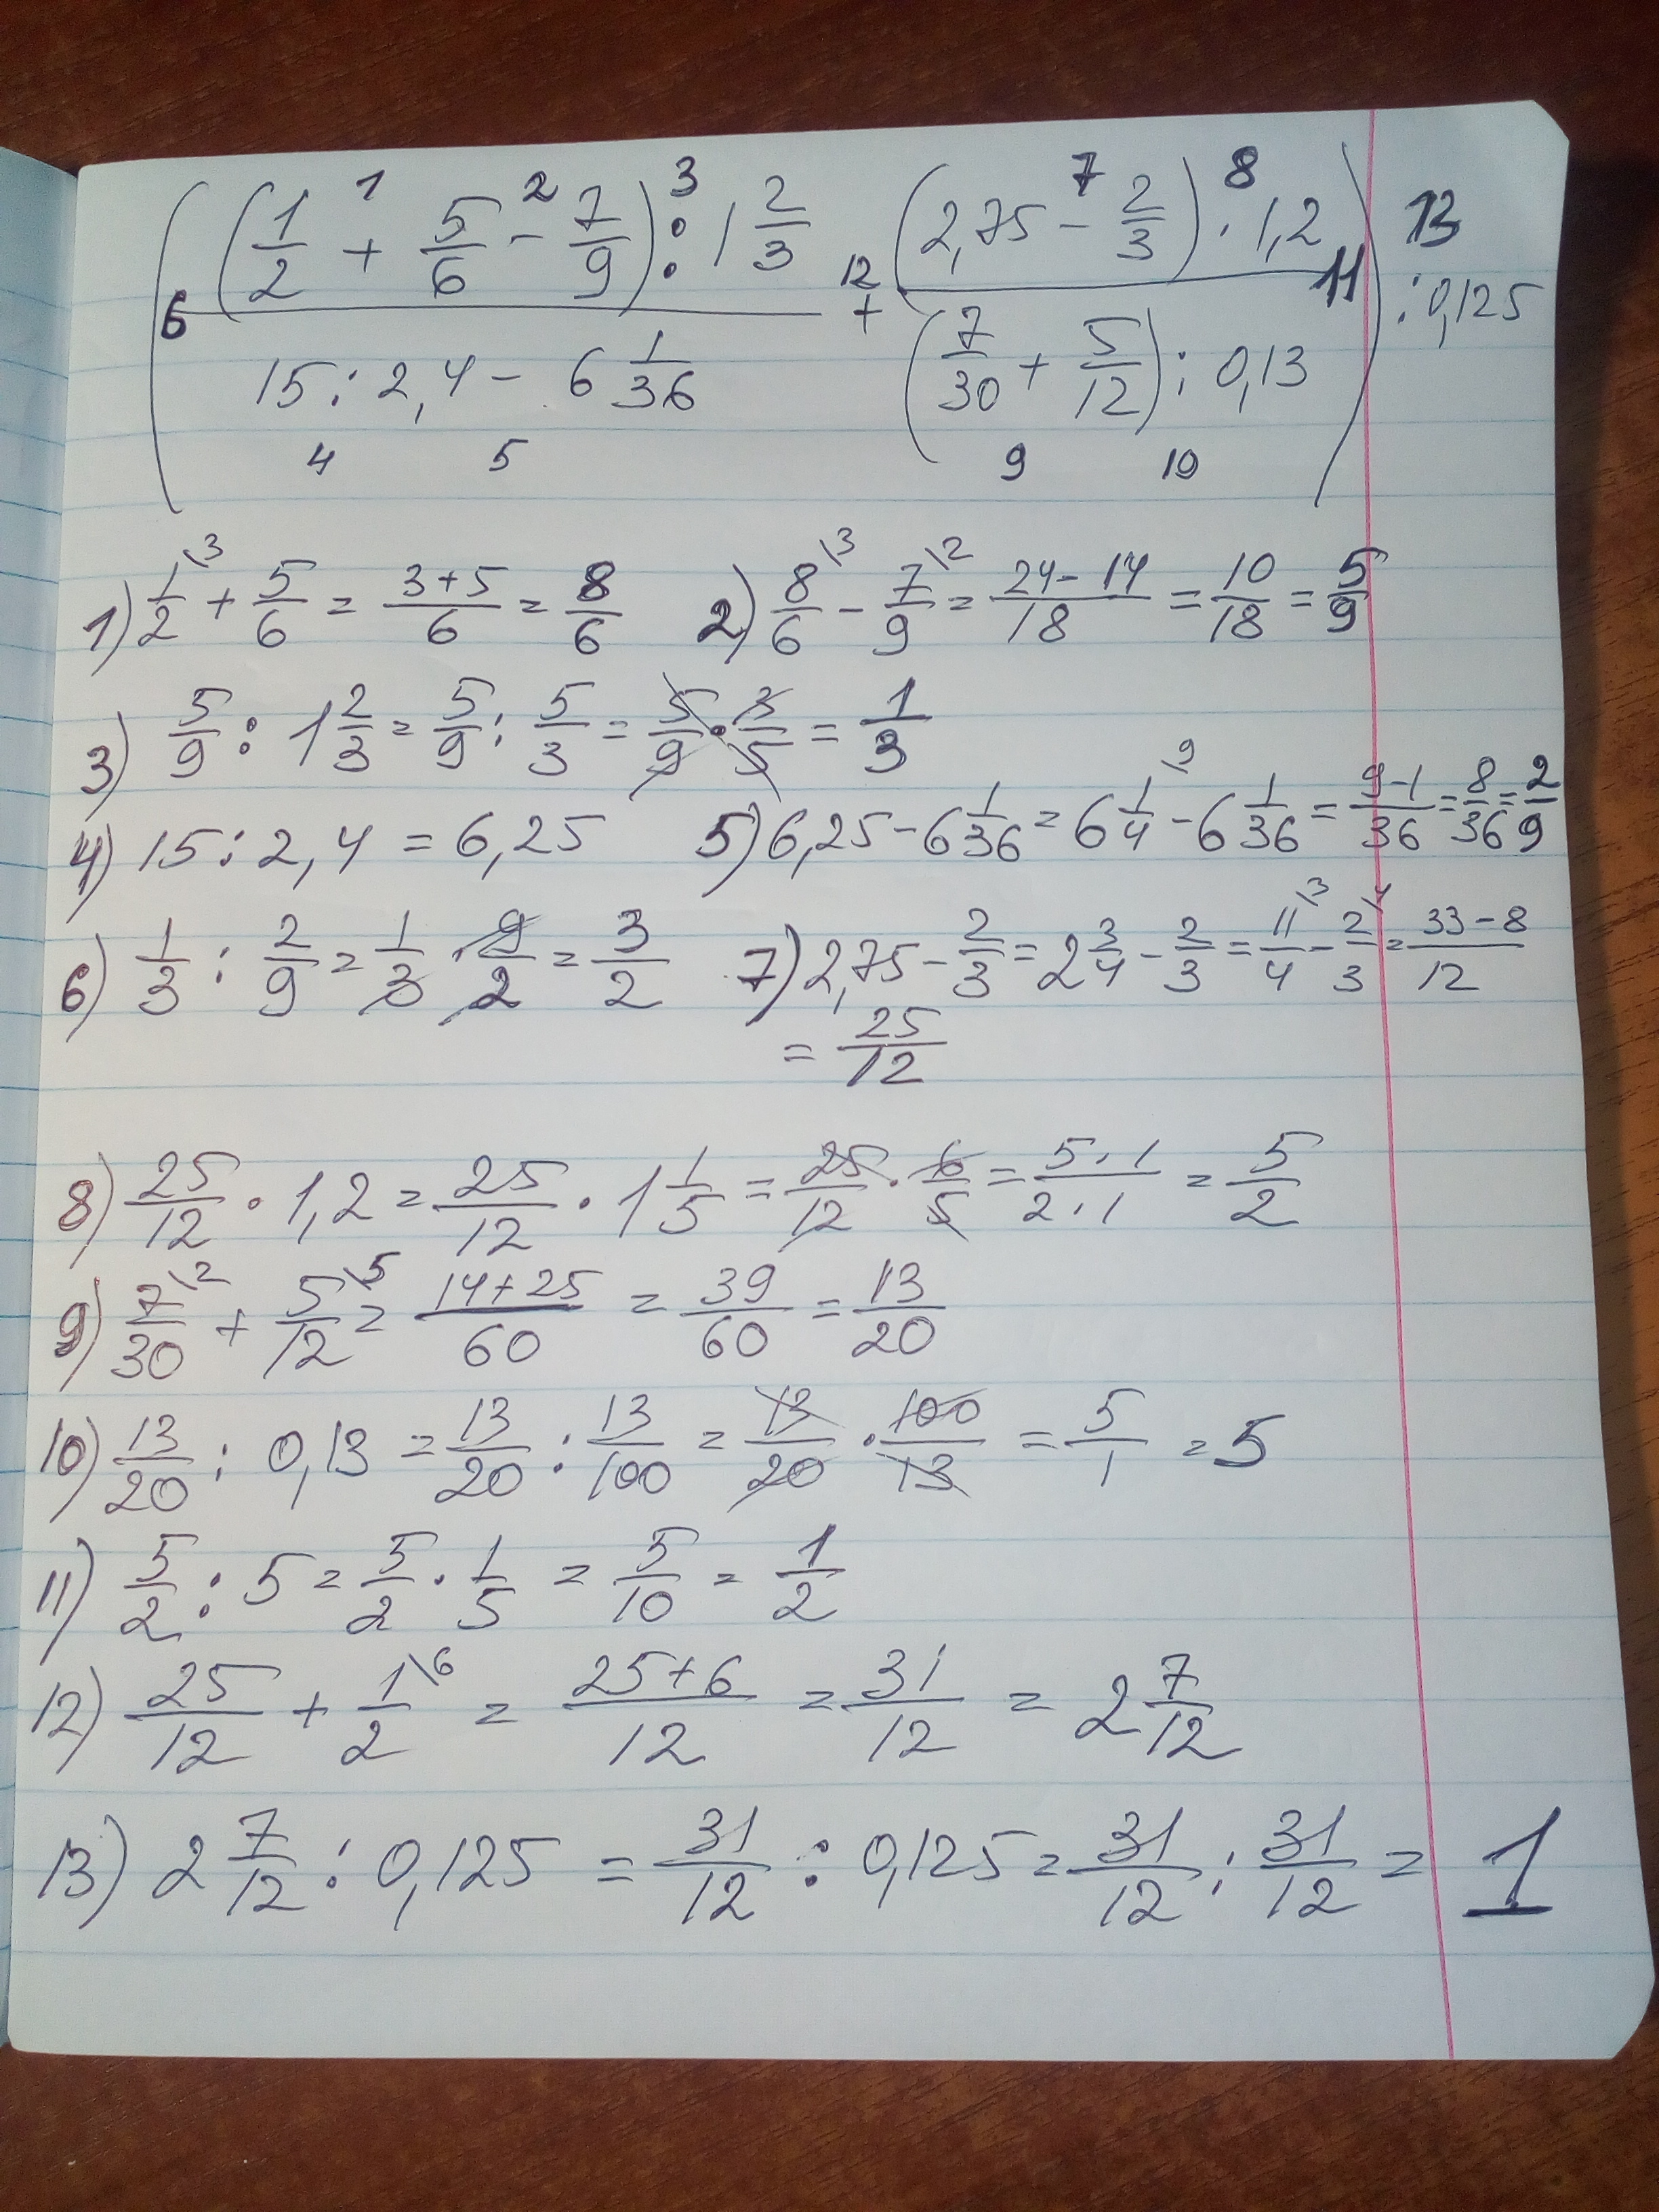 1 2 3 7 8
((1/2 + 5/6 - 7/9) : 1 2/3 12 + (2,75 - 2/3) · 1,2) 13 : 0,125
6 11
15 : 2,4 - 6 1/36 (7/30 + 5/12) : 0,13
4 5 9 10
1) 1/2 \3 + 5/6 = (3+5)/6 = 8/6 2) 8/6 \3 - 7/9 \2 = (24-14)/18 = 10/18 = 5/9
3) 5/9 : 1 2/3 = 5/9 : 5/3 = 5/9 · 3/5 = 1/3
4) 15 : 2,4 = 6,25 5) 6,25 - 6 1/36 = 6 1/4 \9 - 6 1/36 = (9-1)/36 = 8/36 = 2/9
6) 1/3 : 2/9 = 1/3 · 9/2 = 3/2 7) 2,75 - 2/3 = 2 3/4 - 2/3 = 11/4 \3 - 2/3 \4 = (33-8)/12
= 25/12
8) 25/12 · 1,2 = 25/12 · 1 1/5 = 25/12 · 6/5 = (5·1)/(2·1) = 5/2
9) 7/30 \2 + 5/12 \5 = (14+25)/60 = 39/60 = 13/20
10) 13/20 : 0,13 = 13/20 : 13/100 = 13/20 · 100/13 = 5/1 = 5
11) 5/2 : 5 = 5/2 · 1/5 = 5/10 = 1/2
12) 25/12 + 1/2 \6 = (25+6)/12 = 31/12 = 2 7/12
13) 2 7/12 : 0,125 = 31/12 : 0,125 = 31/12 : 31/12 = 1